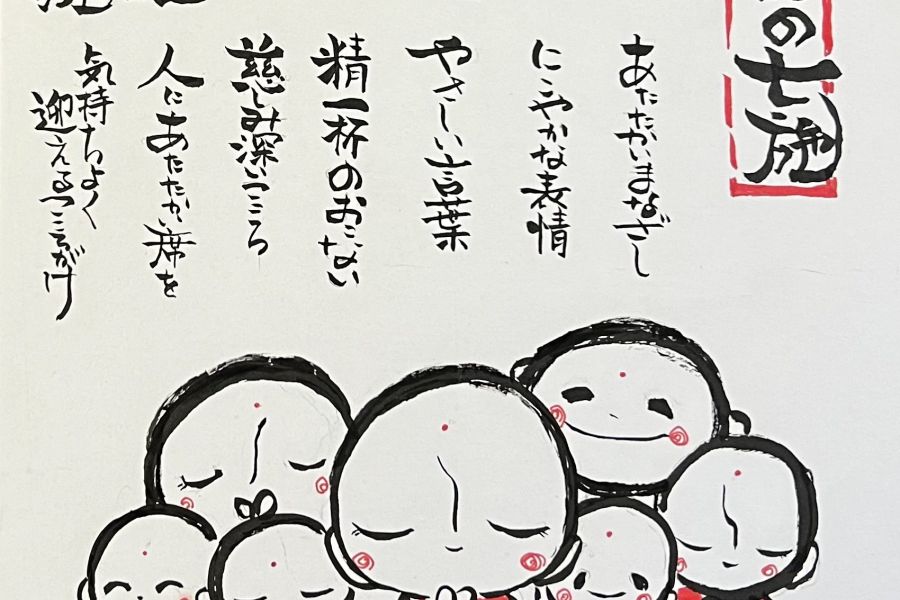 の七施
あたたかいまなざし
にこやかな表情
やさしい言葉
精一杯のおこない
慈しみ深いこころ
人にあたたかい席を
気持ちよく
迎えるこころがけ